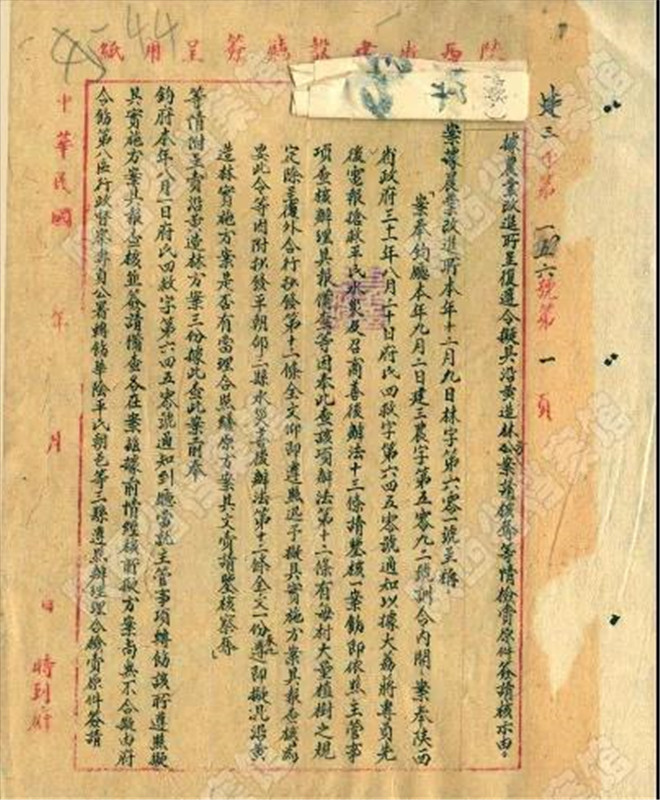 陕西省建设厅签呈用纸
44
建三字第一五六號第一頁
據農業改進所呈復遵令擬具沿黄造林方案請核等等情檢賫原件簽請核示由。
案據農業改進所本年十二月九日林字第六零一號呈稱
「案奉鈞廳本年九月二日建三農字第五零九二號訓令內開「案奉陕西
省政府三十一年八月二十日府民四救字第六四五零號通知以據大荔蔣專員先
後電報搶救平民水災及召商善後辦法十三條請鑒核一案飭即依照主管事
項查核辦理具報備查等因奉此查該項辦法第十二條有每村大量植樹之規
定除呈復外合行抄發第十二條全文仰即遵照迅予擬具實施方案具報查核為
要此令等因附抄發平朝郃三縣水災善後辦法第十二條全文一份奉此遵即擬具沿黄
造林實施方案是否有當理合照繕原方案具文賫請鑒核察等」
等情附呈賫沿黄造林方案三份據此查此案前奉
鈞府本年八月一日府民四救字第六四五零號通知到廳當就主管事項轉飭該所遵照擬
具實施方案具報查核並簽請備查各在案茲據前情經核所擬方案尚無不合擬由府
令飭第八區行政督察專員公署轉飭華陰平民朝邑等三縣遵照辦理理合檢賫原件簽請
中華民國 年 月 日 時到府